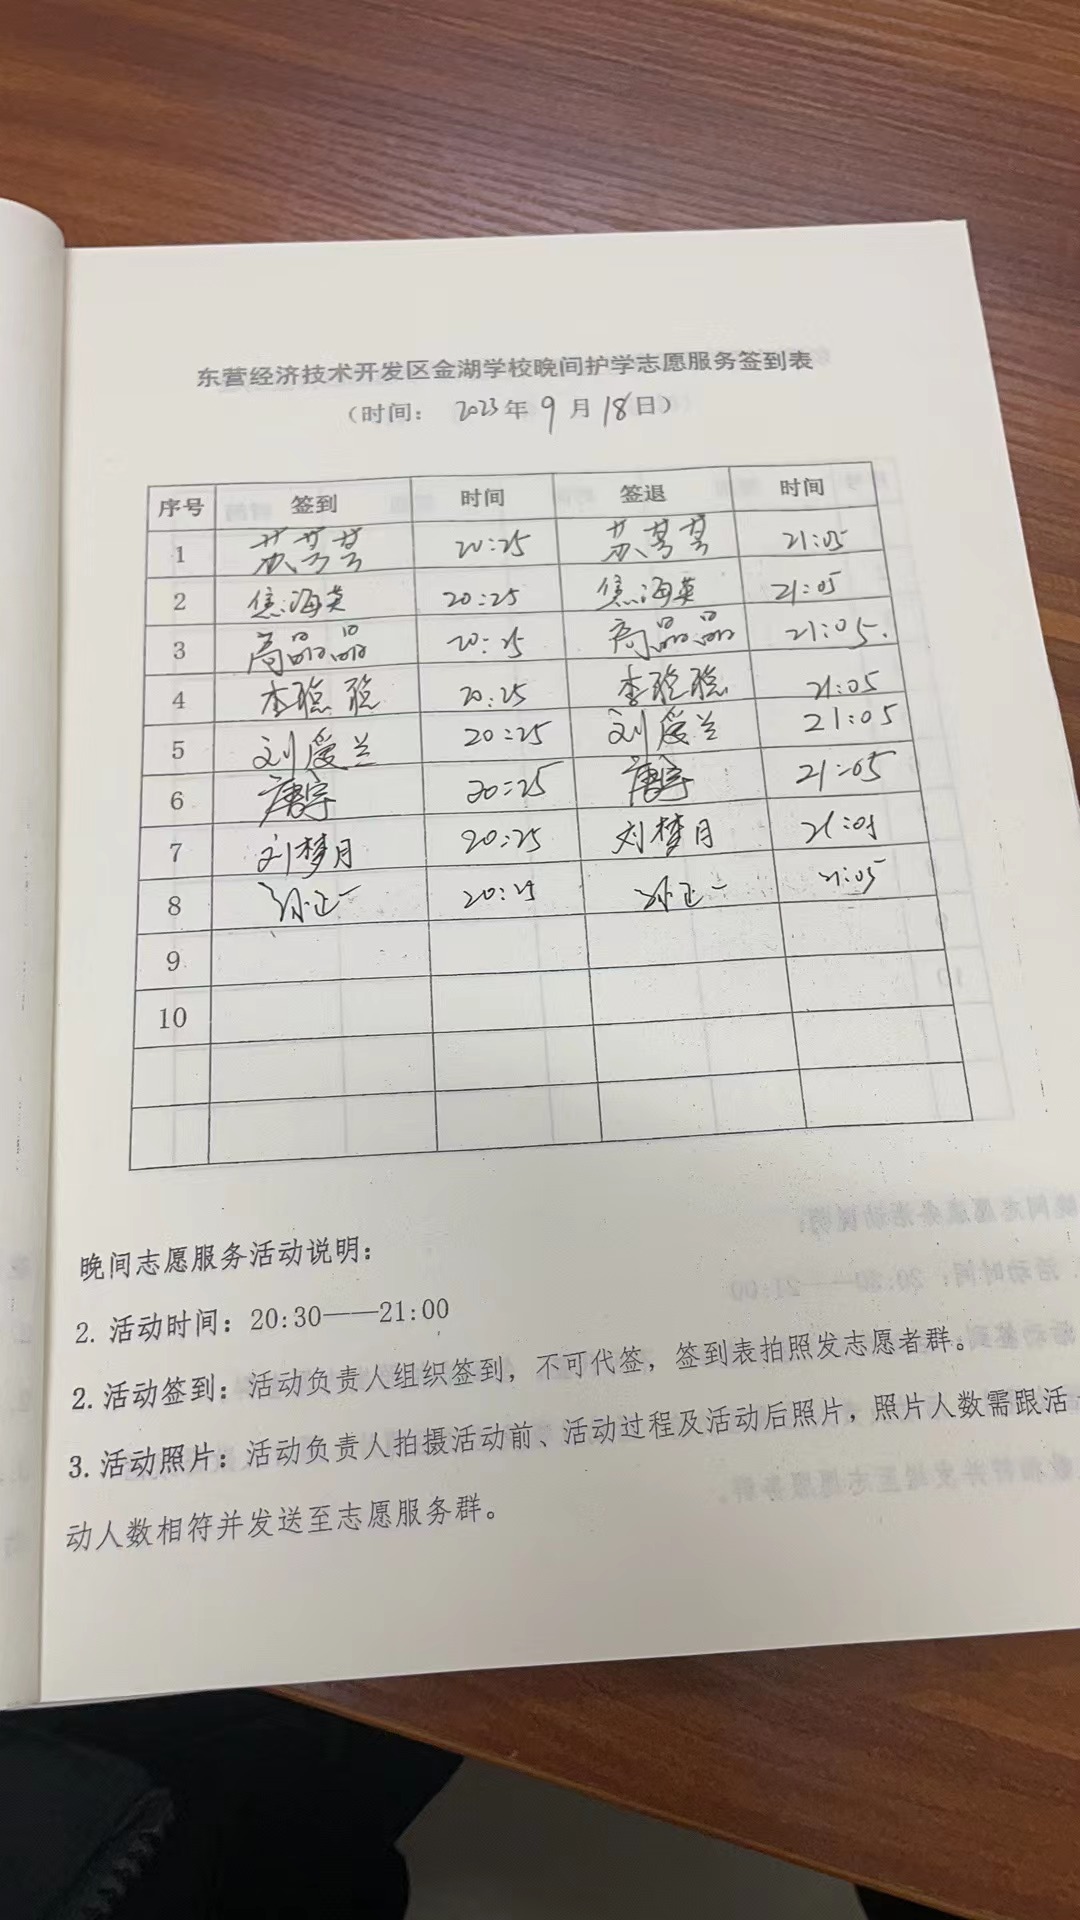 东营经济技术开发区金湖学校晚间护学志愿服务签到表
（时间： 2023年 9 月 18日）
序号 签到 时间 签退 时间
1 苏芳芳 20:25 苏芳芳 21:05
2 焦海英 20:25 焦海英 21:05
3 商品品 20:25 商品品 21:05.
4 李聪聪 20:25 李聪聪 21:05
5 刘爱兰 20:25 刘爱兰 21:05
6 唐宇 20:25 唐宇 21:05
7 刘梦月 20:25 刘梦月 21:05
8 孙正一 20:25 孙正一 21:05
9
10
晚间志愿服务活动说明：
2. 活动时间：20:30——21:00
2. 活动签到：活动负责人组织签到，不可代签，签到表拍照发志愿者群。
3. 活动照片：活动负责人拍摄活动前、活动过程及活动后照片，照片人数需跟活
动人数相符并发送至志愿服务群。